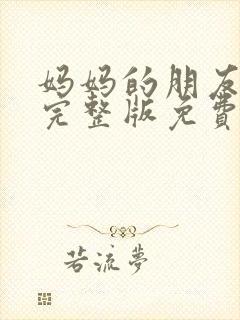 妈妈的朋友
完整版免费
若流梦